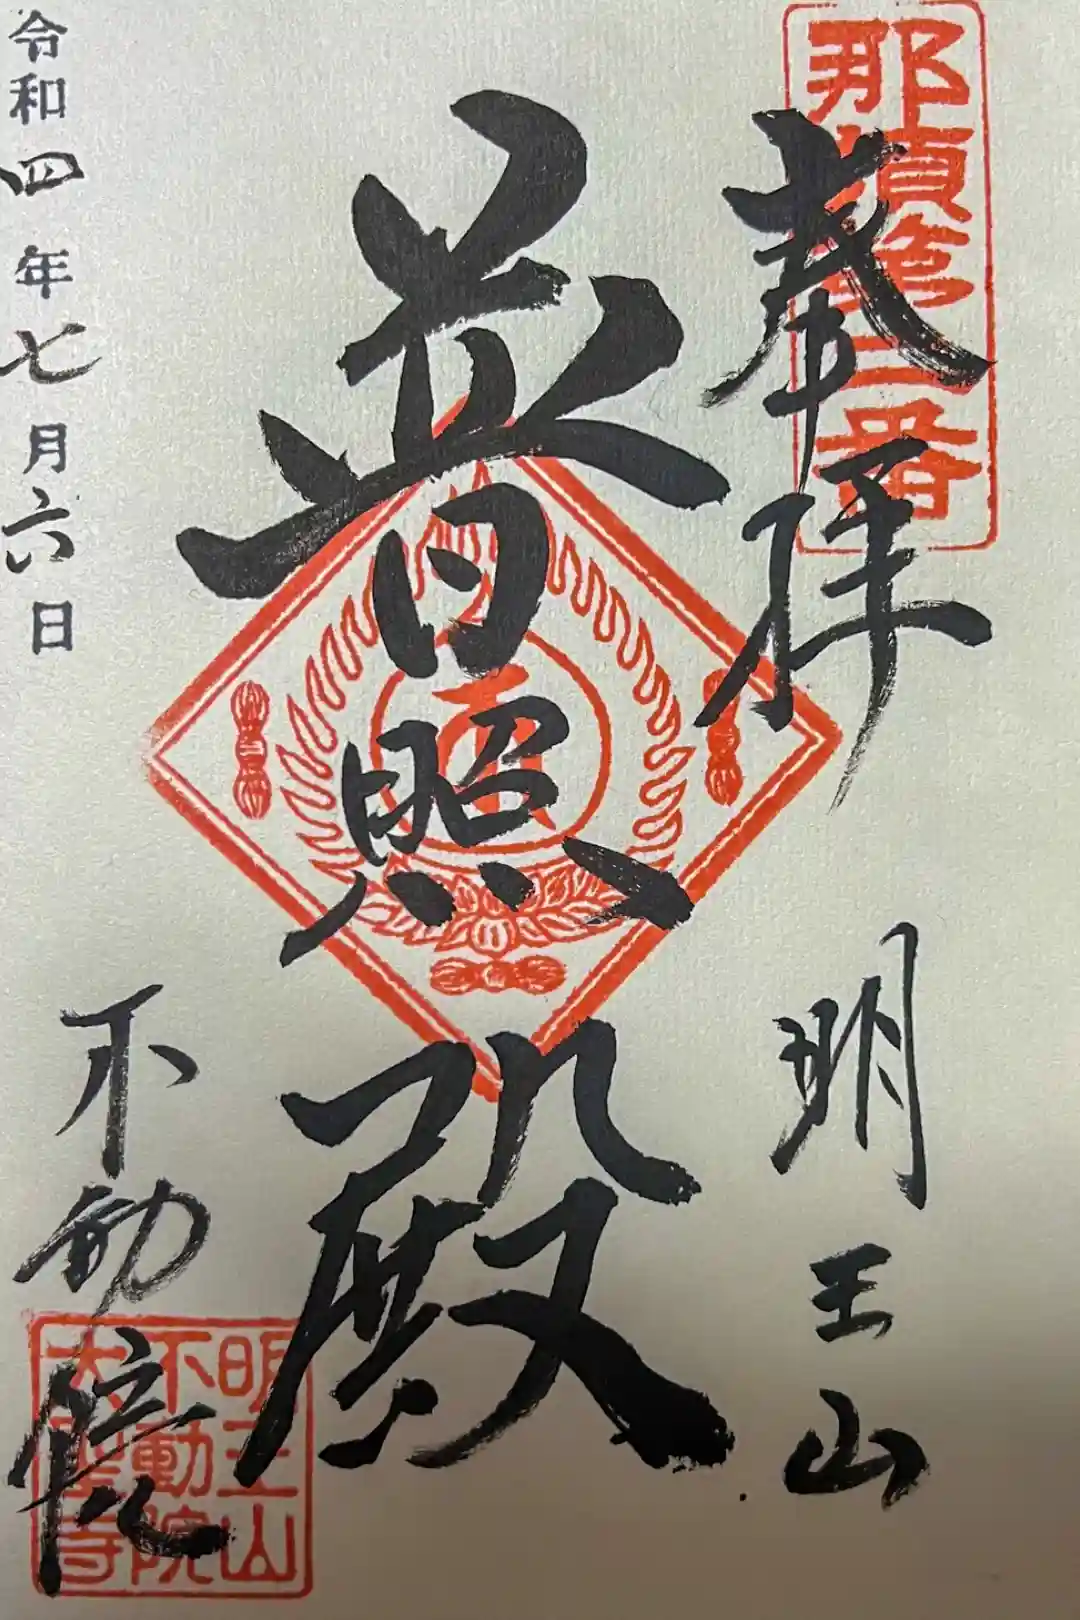 那須第二番
奉拝
明王山
普照殿
令和四年七月六日
不動院
明王山
不動院
大聖寺